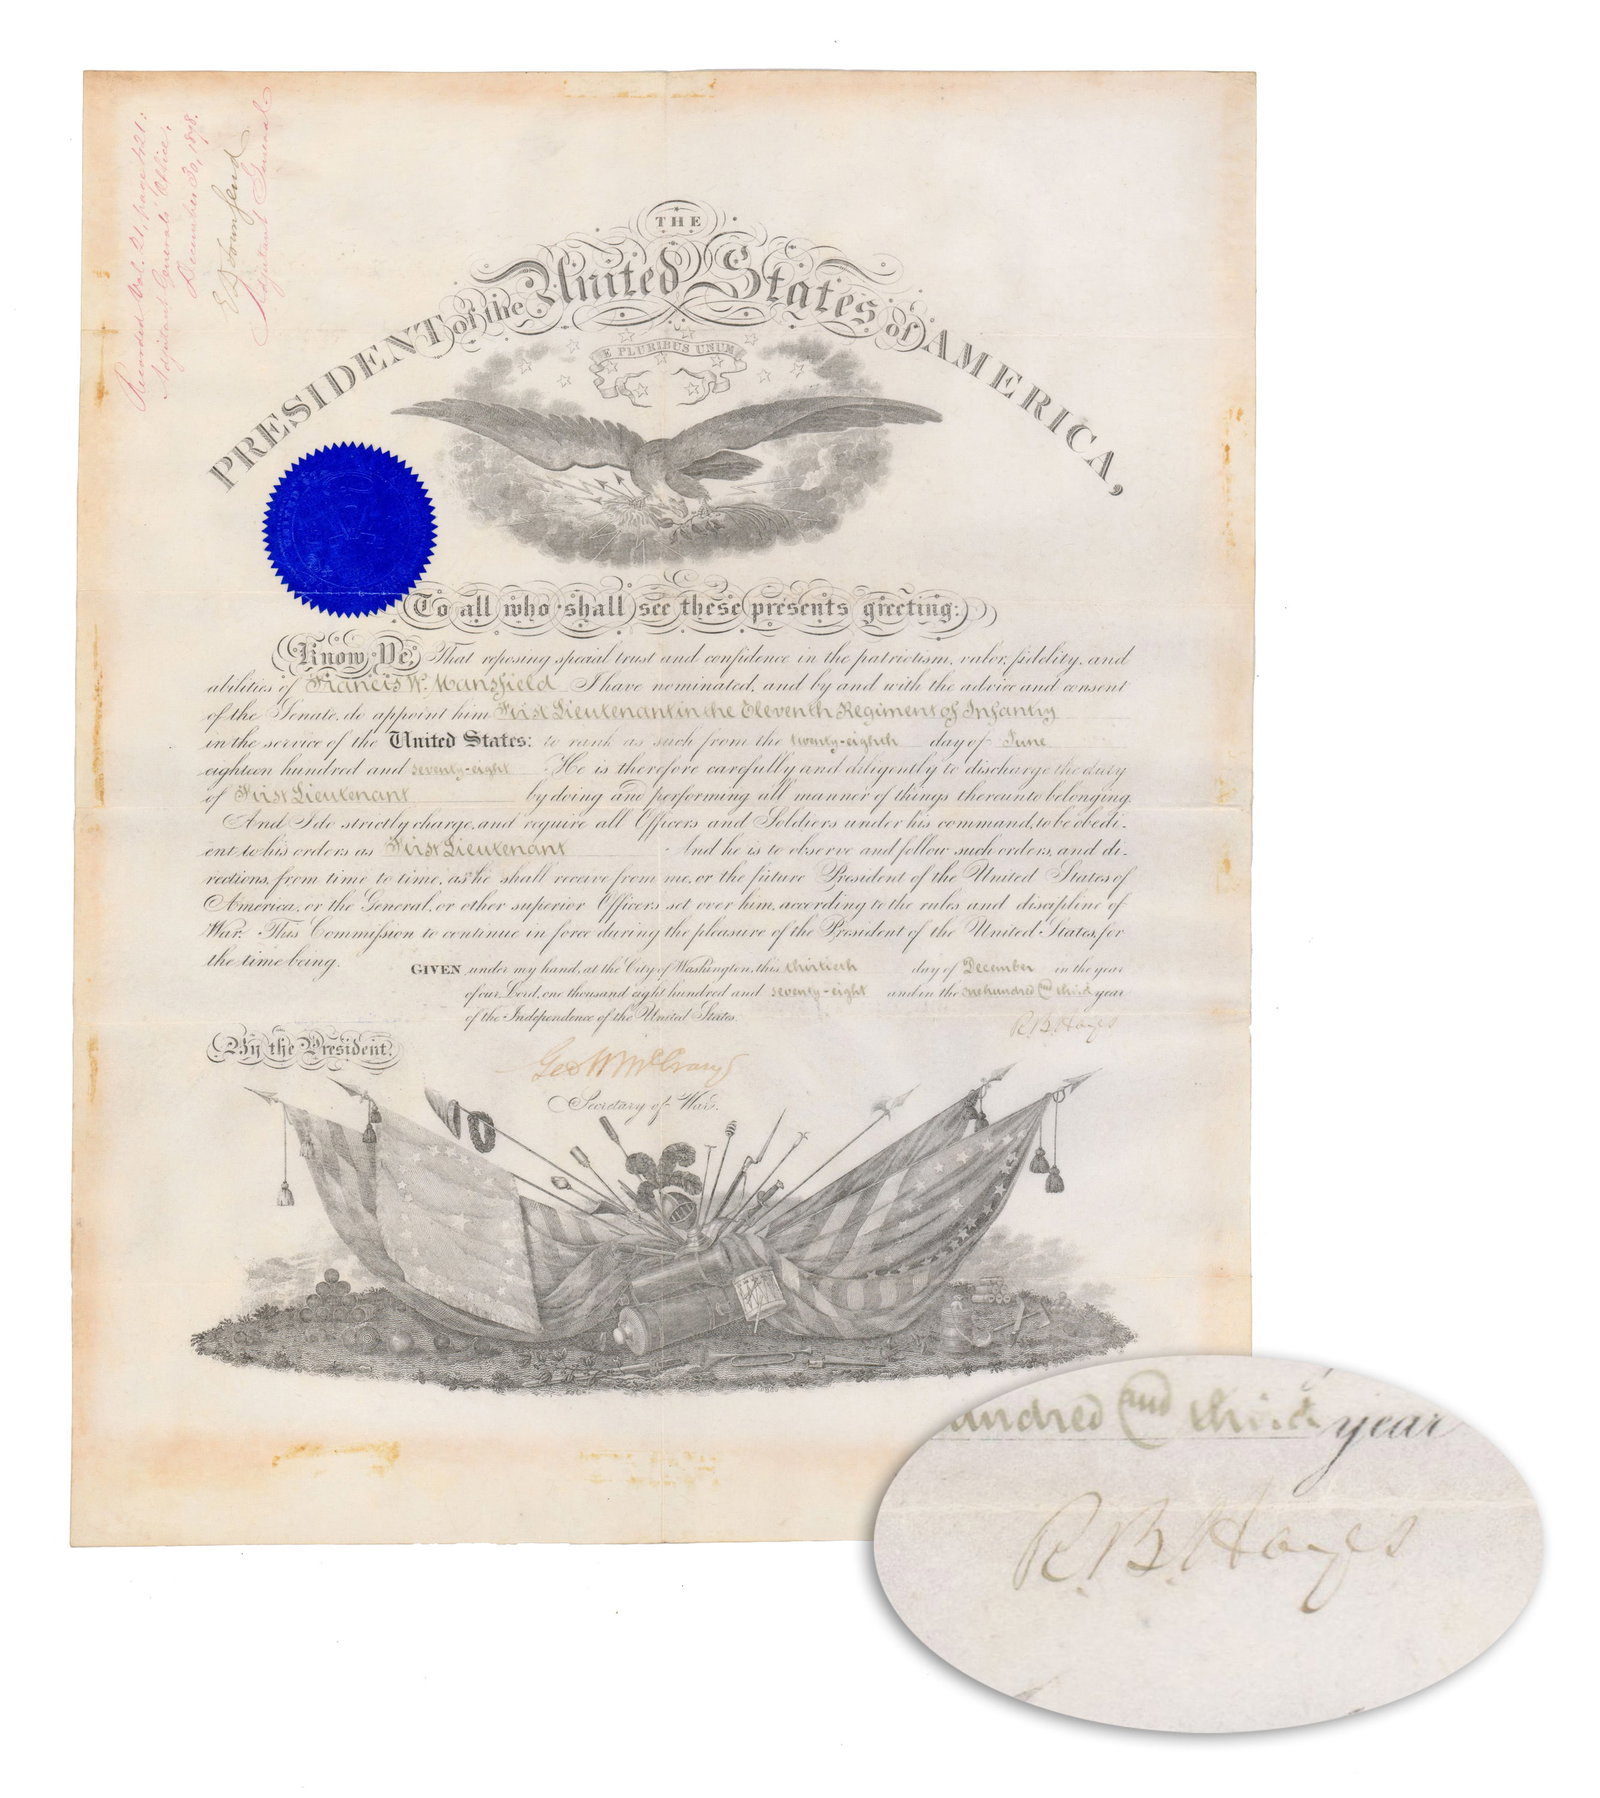 Recorded Vol. 21, page 421:
Adjutant General's Office,
December 30, 1878.
E D Townsend
Adjutant General.
THE
PRESIDENT of the United States of AMERICA,
E PLURIBUS UNUM
To all who shall see these presents greeting:
Know Ye, That reposing special trust and confidence in the patriotism, valor, fidelity, and
abilities of Francis W. Mansfield I have nominated, and by and with the advice and consent
of the Senate, do appoint him First Lieutenant in the Eleventh Regiment of Infantry
in the service of the United States: to rank as such from the twenty-eighth day of June
eighteen hundred and seventy-eight He is therefore carefully and diligently to discharge the duty
of First Lieutenant by doing and performing all manner of things thereunto belonging.
And I do strictly charge, and require all Officers and Soldiers under his command, to be obedi-
ent to his orders as First Lieutenant And he is to observe and follow such orders, and di-
rections, from time to time, as he shall receive from me, or the future President of the United States of
America, or the General, or other superior Officers set over him, according to the rules and discipline of
War. This Commission to continue in force during the pleasure of the President of the United States, for
the time being.
GIVEN under my hand, at the City of Washington, this thirtieth day of December in the year
of our Lord, one thousand eight hundred and seventy-eight and in the one hundred and third year
of the Independence of the United States.
R. B. Hayes
By the President.
Geo W McCrary
Secretary of War.
hundred and third year
R. B. Hayes